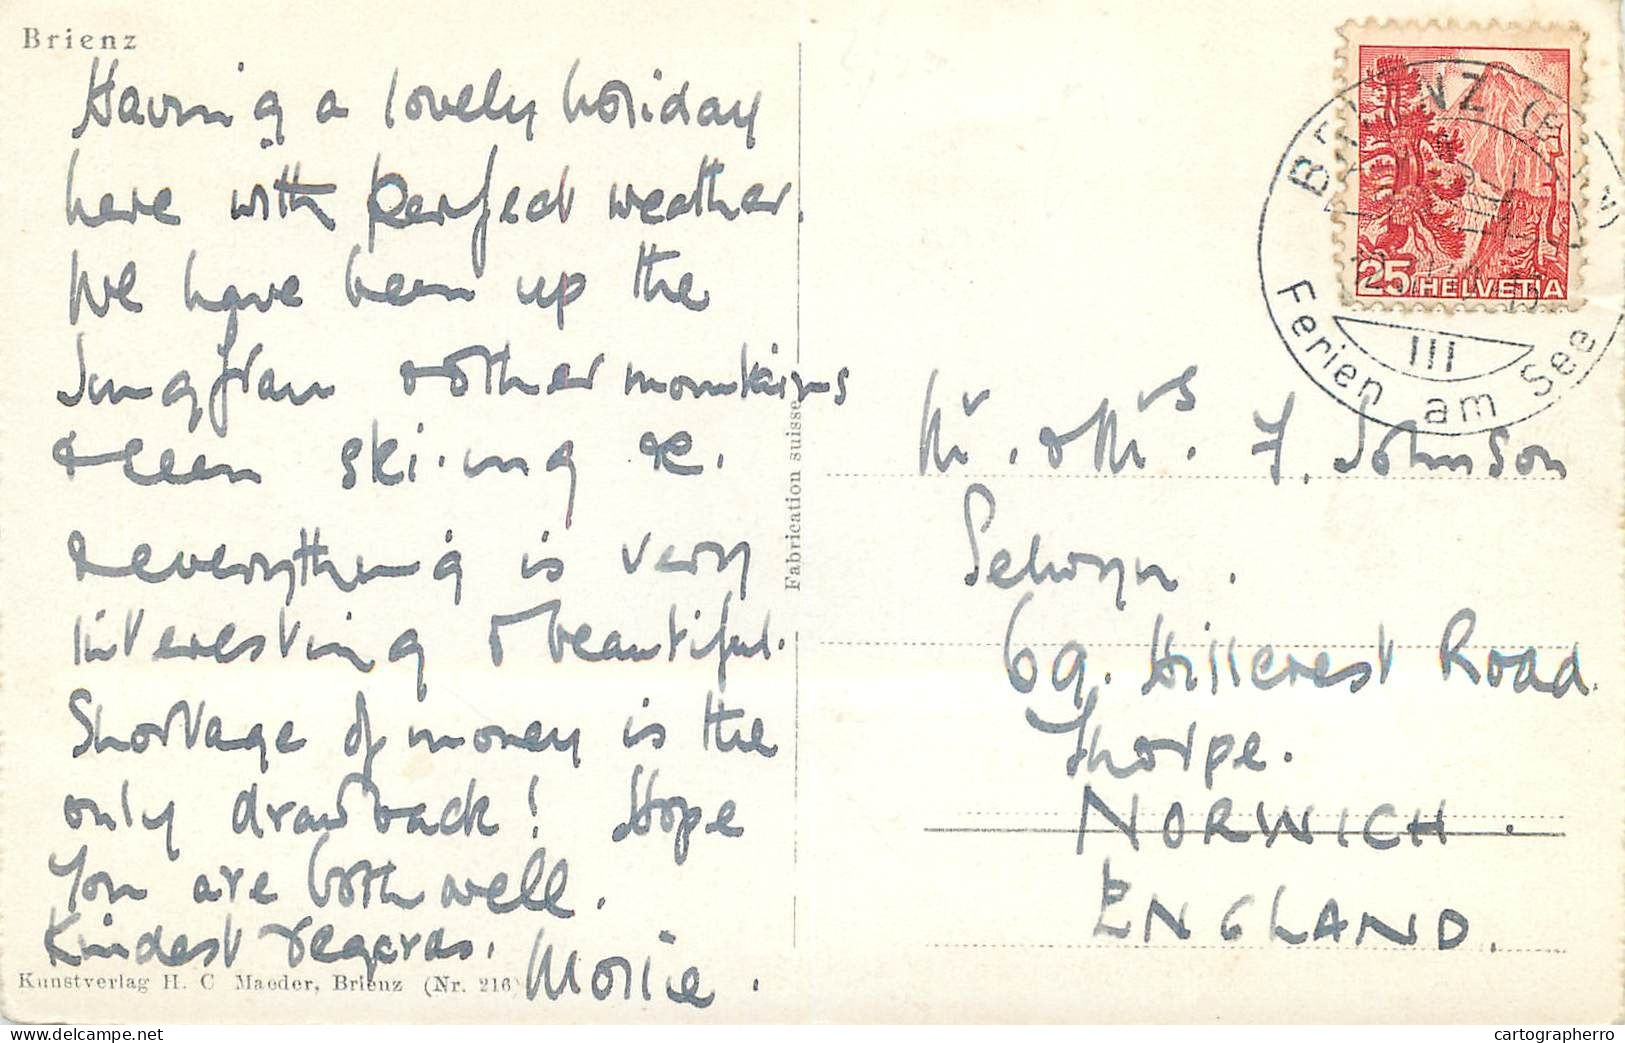 Brienz
Having a lovely holiday
here with perfect weather.
We have been up the
Jungfrau & other mountains
& seen ski-ing &c.
& everything is very
interesting & beautiful.
Shortage of money is the
only drawback! Hope
you are both well.
Kindest regards.
Kunstverlag H. C Maeder, Brienz (Nr. 216)
Fabrication suisse
25 HELVETIA
BRIENZ (BERN)
III
Ferien am See
Mr. & Mrs. F. Johnson
Selwyn.
69. Hillcrest Road
Thorpe.
NORWICH.
ENGLAND.
delcampe.net
cartographerro